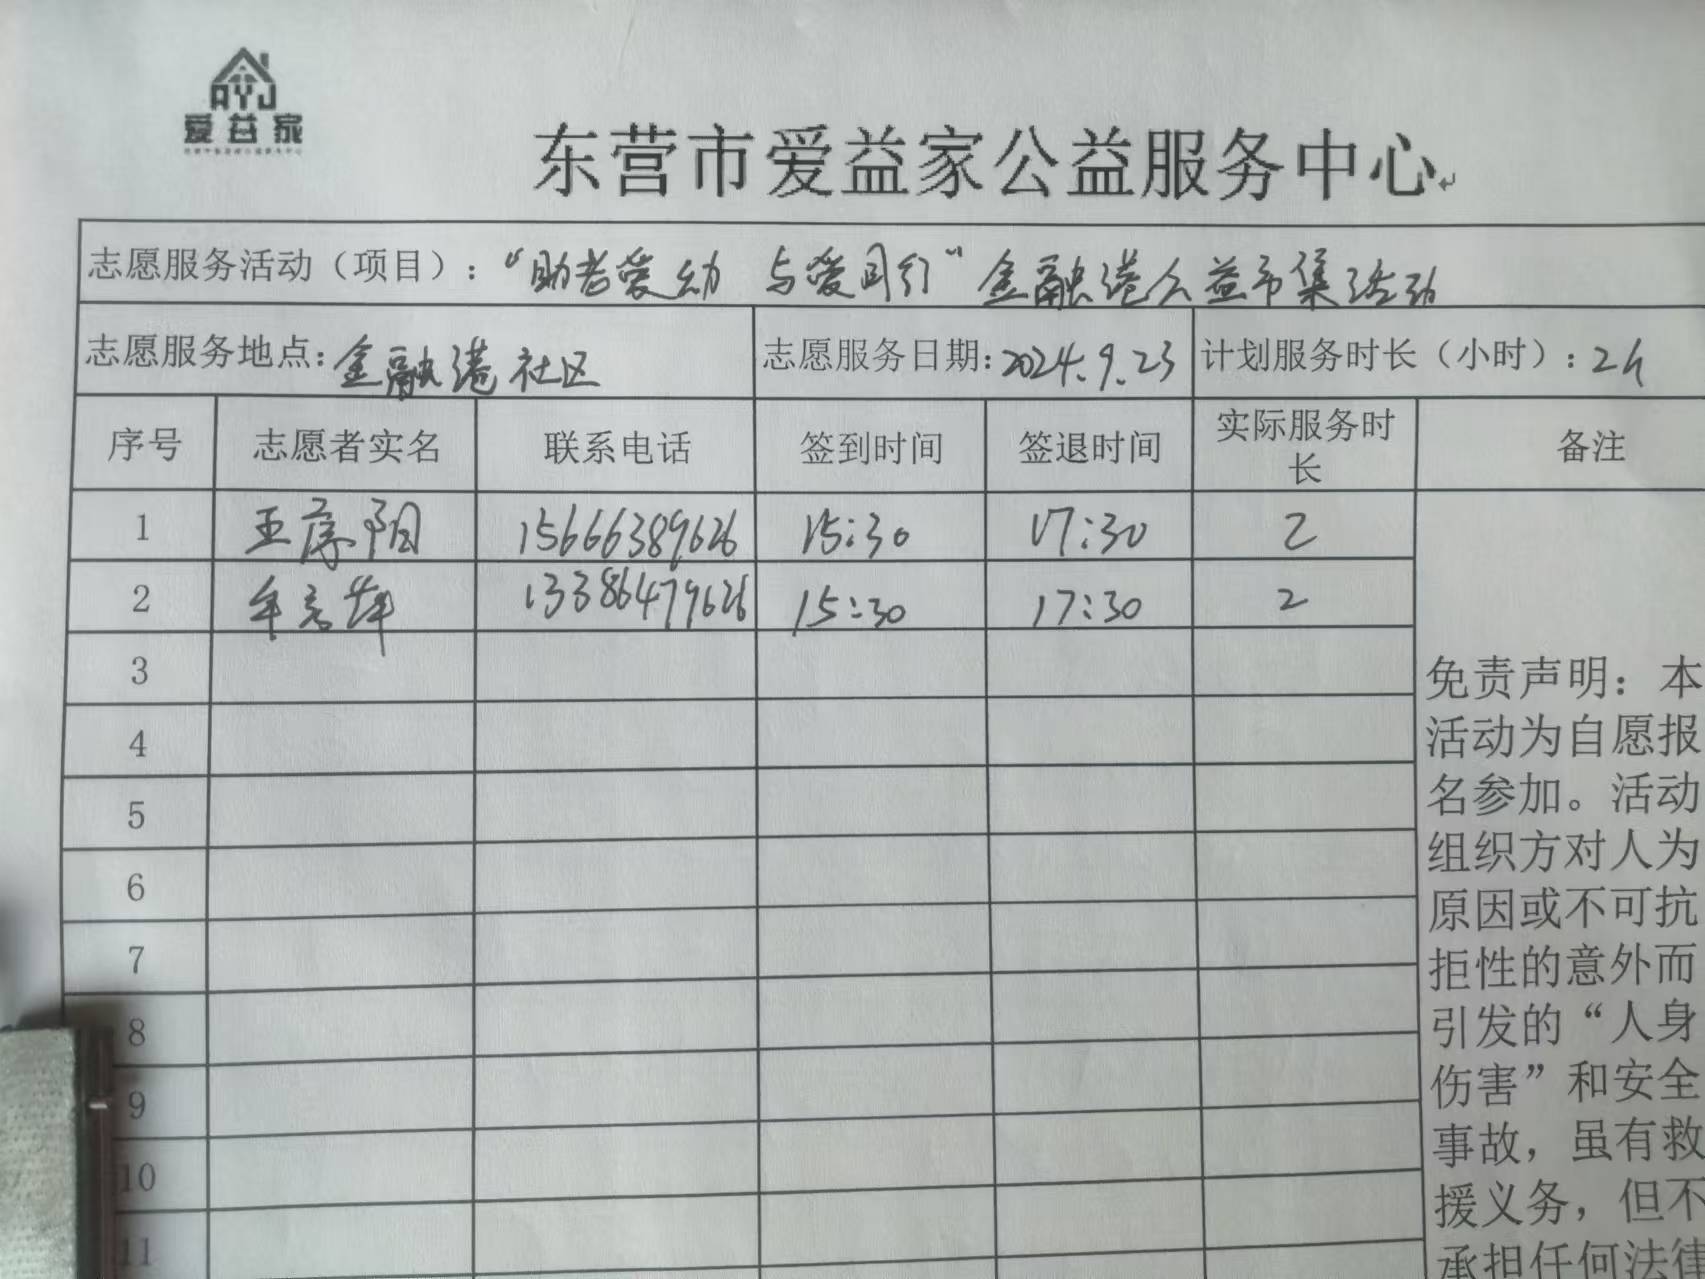 AYJ
爱益家
东营市爱益家公益服务中心
志愿服务活动（项目）：“助老爱幼 与爱同行”金融港公益市集活动
志愿服务地点：金融港社区 志愿服务日期：2024.9.23 计划服务时长（小时）：2h
序号 志愿者实名 联系电话 签到时间 签退时间 实际服务时长 备注
1 王彦阳 15666389626 15:30 17:30 2
2 13386479626 15:30 17:30 2
3
4
5
6
7
8
9
10
11
免责声明：本
活动为自愿报
名参加。活动
组织方对人为
原因或不可抗
拒性的意外而
引发的“人身
伤害”和安全
事故，虽有救
援义务，但不
承担任何法律